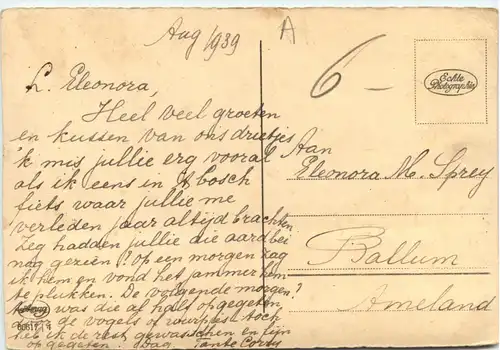 Aug 1939
A
6-
Echte
Photographie
L. Eleonora,
Heel veel groeten
en kussen van ons drietjes
'k mis jullie erg vooral
als ik eens in 't bosch
fiets waar jullie me
verleden jaar altijd brachten
Zeg hadden jullie die aardbei
nog gezien? Op een morgen zag
ik hem en vond het jammer hem
te plukken. De volgende morgen?
was die af half opgegeten
de vogels of wurpies toch
heb ik de rest gewasschen en fijn
opgegeten! Dag Tante Corry
Aan
Eleonora M. Sprey
Ballum
Ameland